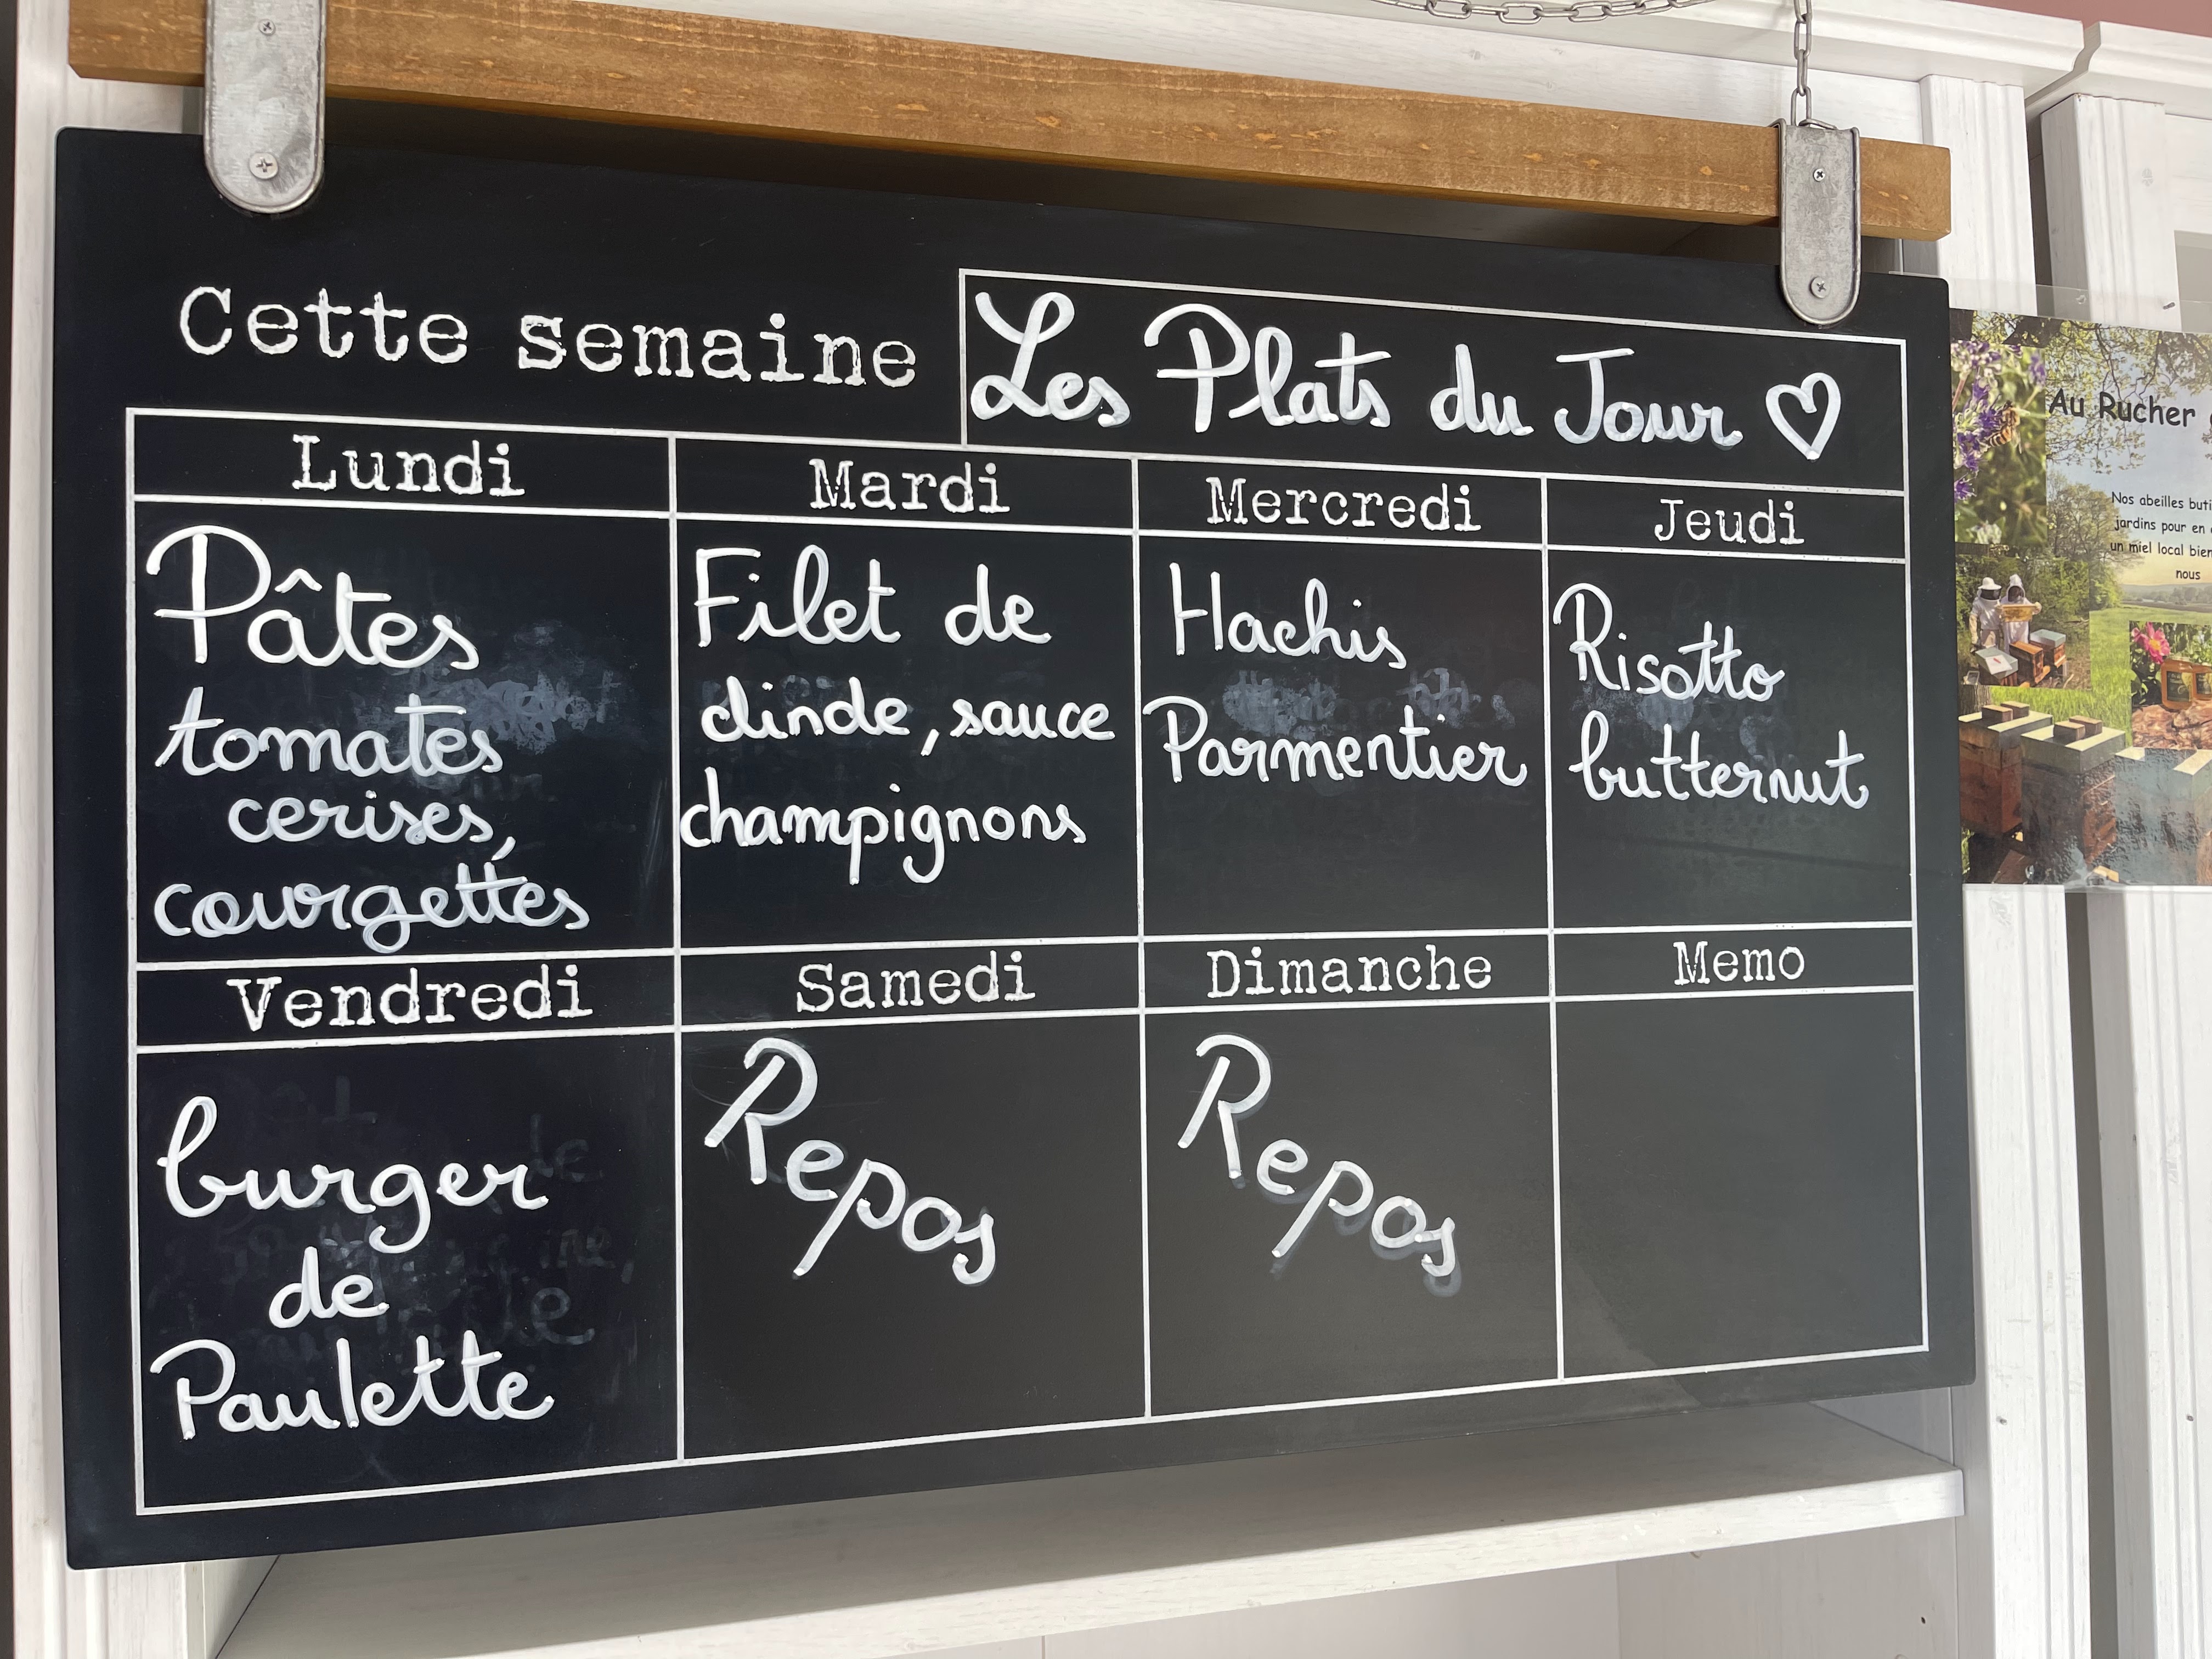 Cette semaine
Les Plats du Jour ♡
Lundi
Mardi
Mercredi
Jeudi
Pâtes
tomates
cerises,
courgettes
Filet de
dinde, sauce
champignons
Hachis
Parmentier
Risotto
butternut
Vendredi
Samedi
Dimanche
Memo
burger
de
Paulette
Repos
Repos
Au Rucher
Nos abeilles
jardins pour en
un miel local
nous